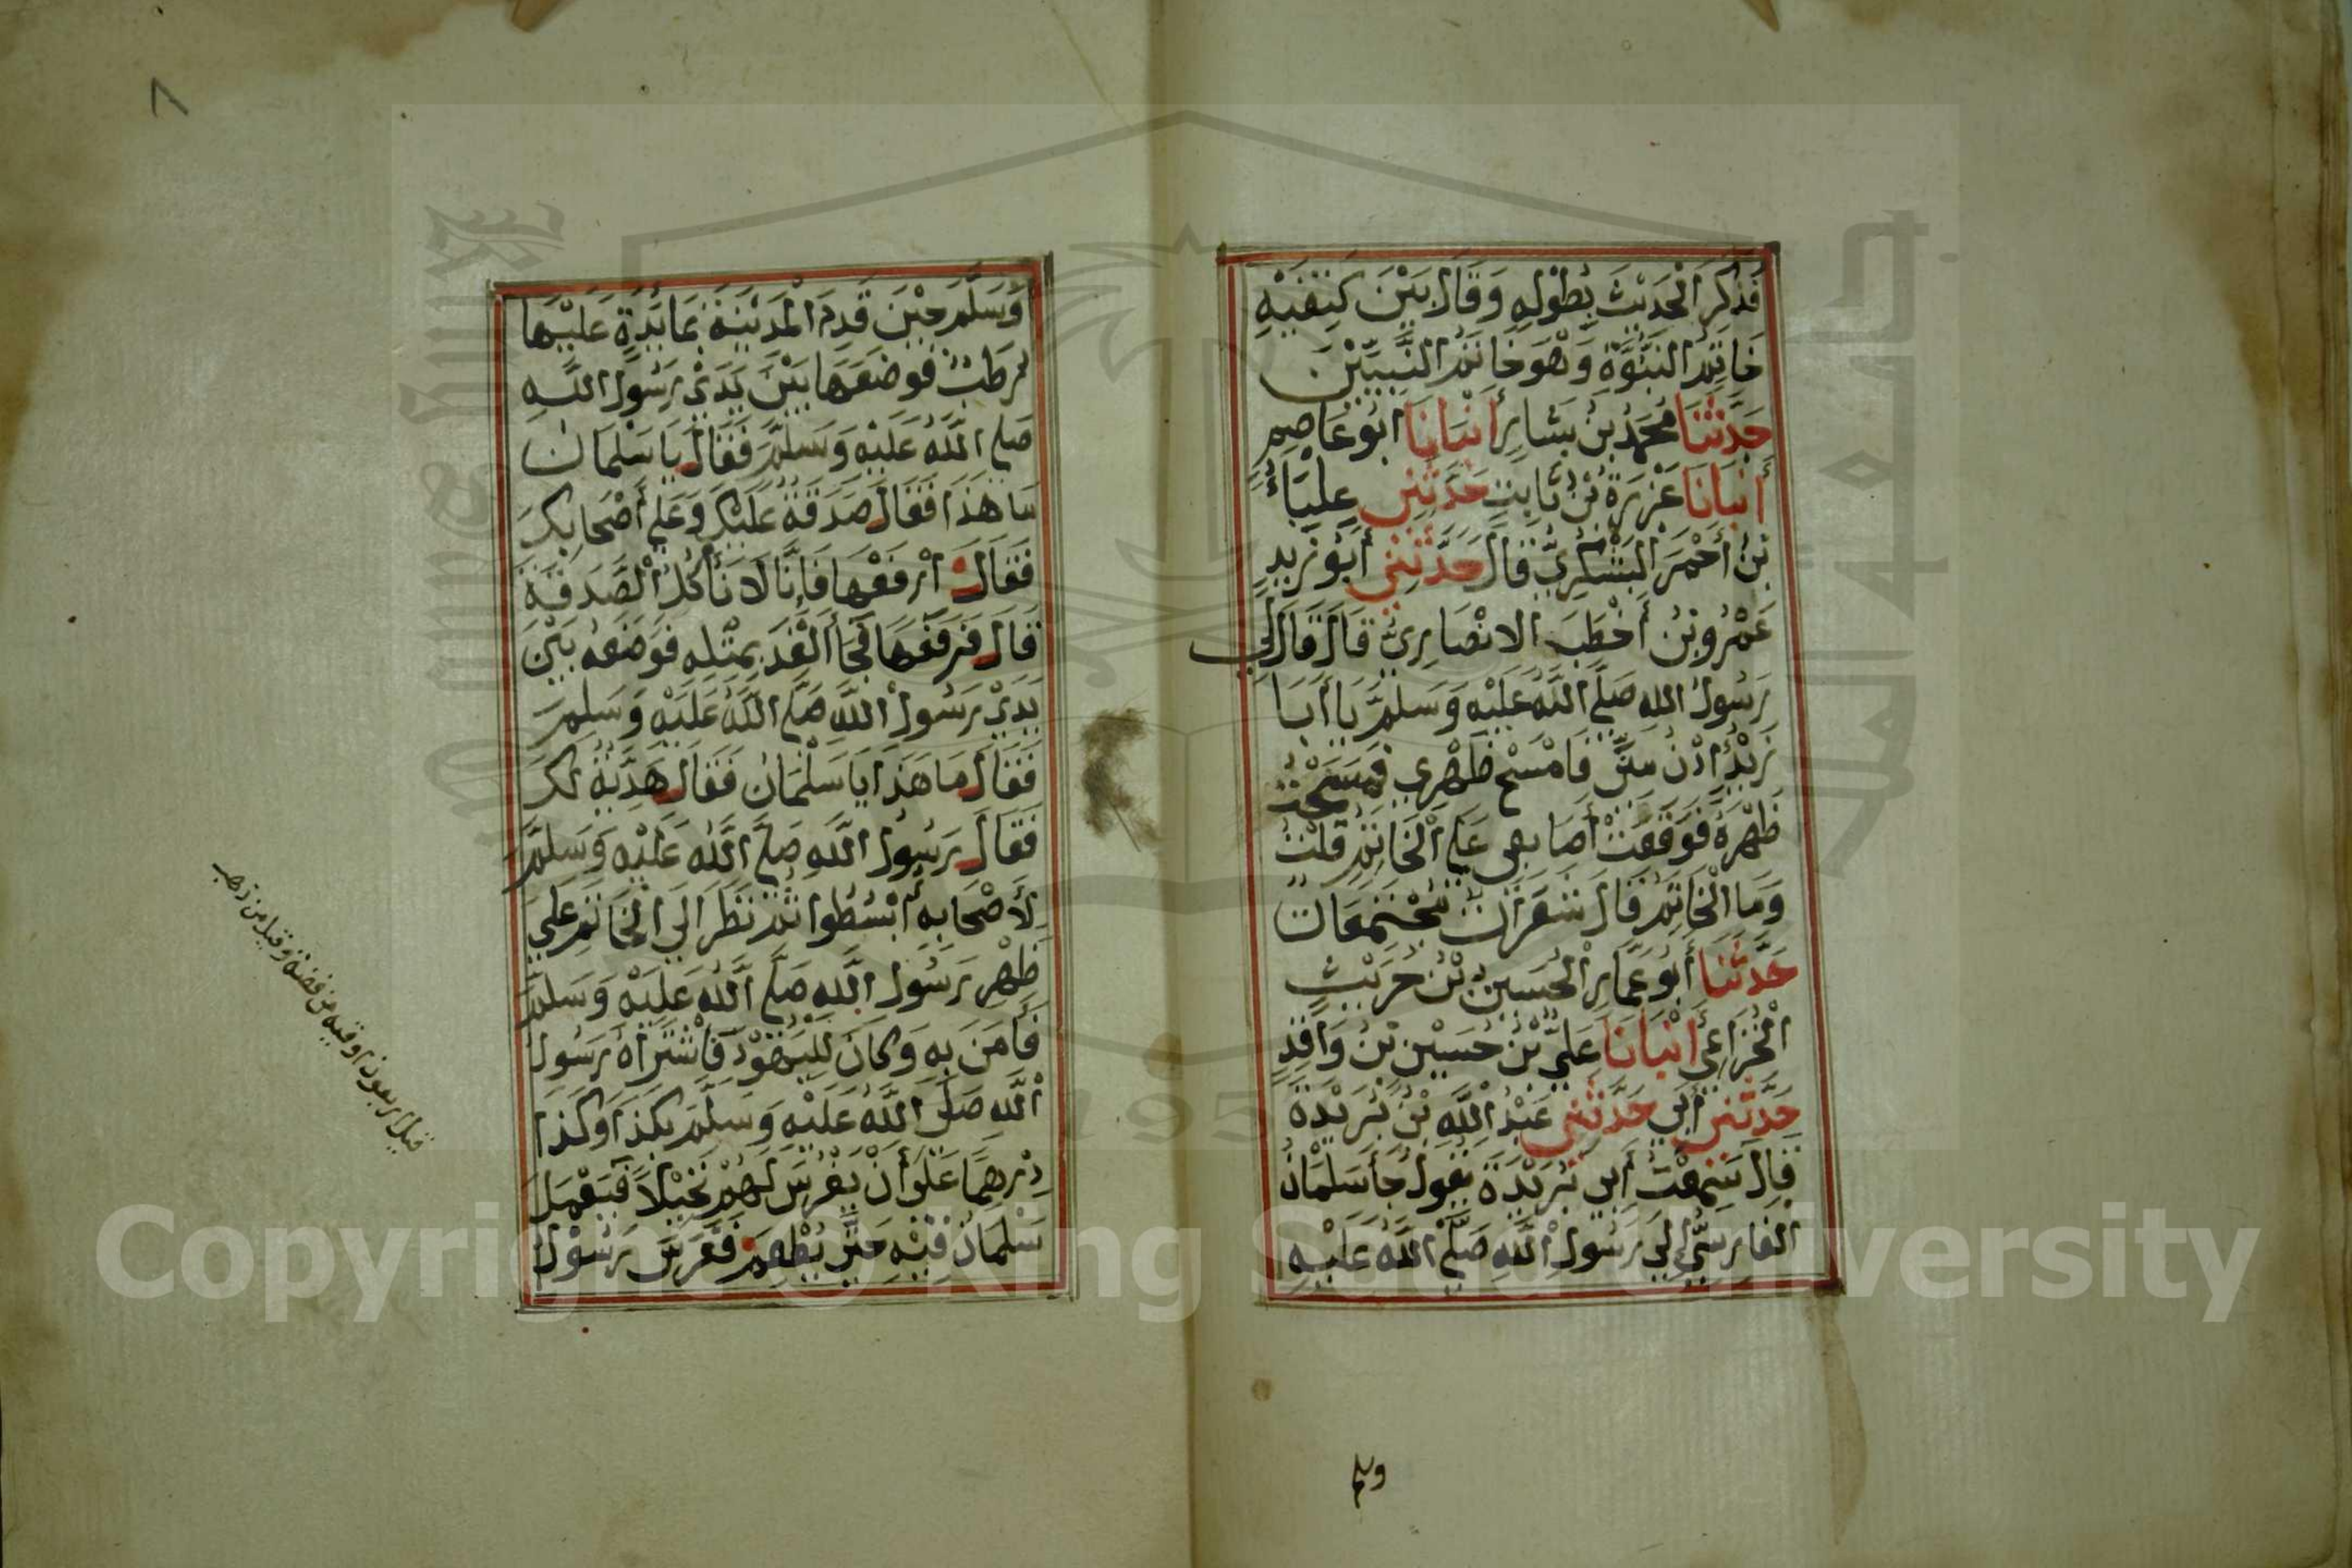 فَذَكَرَ الْحَدِيْثَ بِطُوْلِهِ وَقَالَ بَيْنَ كَتِفَيْهِ
خَاتَمُ النُّبُوَّةِ وَهُوَ خَاتَمُ النَّبِيِّيْنَ
حَدَّثَنَا مُحَمَّدُ بْنُ بَشَّارٍ أَنْبَانَا أَبُو عَاصِمٍ
أَنْبَانَا عَزْرَةُ بْنُ ثَابِتٍ حَدَّثَنِي عِلْبَاءُ
بْنُ أَحْمَرَ الْيَشْكُرِيُّ قَالَ حَدَّثَنِي أَبُو زَيْدٍ
عَمْرُو بْنُ أَخْطَبَ الانْصَارِيُّ قَالَ قَالَ لِي
رَسُوْلُ اللهِ صَلَّى اللَّهُ عَلَيْهِ وَسَلَّمَ يَا أَبَا
زَيْدٍ ادْنُ مِنِّي فَامْسَحْ ظَهْرِي فَمَسَحْتُ
ظَهْرَهُ فَوَقَعَتْ أَصَابِعِي عَلَى الْخَاتَمِ قُلْتُ
وَمَا الْخَاتَمُ قَالَ شَعَرَاتٌ مُجْتَمِعَاتٌ
حَدَّثَنَا أَبُو عَمَّارٍ الْحُسَيْنُ بْنُ حُرَيْثٍ
الْخُزَاعِي أَنْبَانَا عَلِيُّ بْنُ حُسَيْنِ بْنِ وَاقِدٍ
حَدَّثَنِي أَبِي حَدَّثَنِي عَبْدُ اللَّهِ بْنُ بُرَيْدَةَ
قَالَ سَمِعْتُ أَبِي بُرَيْدَةَ يَقُوْلُ جَأَ سَلْمَانُ
الفَارِسِيُّ إِلَى رَسُوْلِ اللَّهِ صَلَّى اللَّهُ عَلَيْهِ
وسلم
٧
وَسَلَّمَ حِيْنَ قَدِمَ الْمَدِيْنَةَ بِمَائِدَةٍ عَلَيْهَا
رُطَبٌ فَوَضَعَهَا بَيْنَ يَدَيْ رَسُوْلِ اللَّهِ
صَلَّى اللَّهُ عَلَيْهِ وَسَلَّمَ فَقَالَ يَا سَلْمَانُ
مَا هَذَا فَقَالَ صَدَقَةٌ عَلَيْكَ وَعَلَى أَصْحَابِكَ
فَقَالَ ارْفَعْهَا فَإِنَّا لَا نَأْكُلُ الْصَّدَقَةَ
قَالَ فَرَفَعَهَا فَجَأَ الْغَدَ بِمِثْلِهِ فَوَضَعَهُ بَيْنَ
يَدَيْ رَسُوْلِ اللَّهِ صَلَّى اللَّهُ عَلَيْهِ وَسَلَّمَ
فَقَالَ مَا هَذَا يَا سَلْمَانُ فَقَالَ هَدِيَّةٌ لَكَ
فَقَالَ رَسُوْلُ اللَّهِ صَلَّى اللَّهُ عَلَيْهِ وَسَلَّمَ
لِأَصْحَابِهِ ابْسُطُوا ثُمَّ نَظَرَ إِلَى الْخَاتَمِ عَلَى
ظَهْرِ رَسُوْلِ اللَّهِ صَلَّى اللَّهُ عَلَيْهِ وَسَلَّمَ
فَأَمَنَ بِهِ وَكَانَ لِلْيَهُوْدِ فَاشْتَرَاهُ رَسُوْلُ
اللَّهِ صَلَّى اللَّهُ عَلَيْهِ وَسَلَّمَ بِكَذَا وَكَذَا
دِرْهَمًا عَلَى أَنْ يَغْرِسَ لَهُمْ نَخِيْلاً فَيَعْمَلَ
سَلْمَانُ فِيْهِ حَتَّى يُطْعِمَ فَغَرَسَ رَسُوْلُ
قيل اربعون اوقية من فضة وقيل من ذهب
Copyright © King Saud University